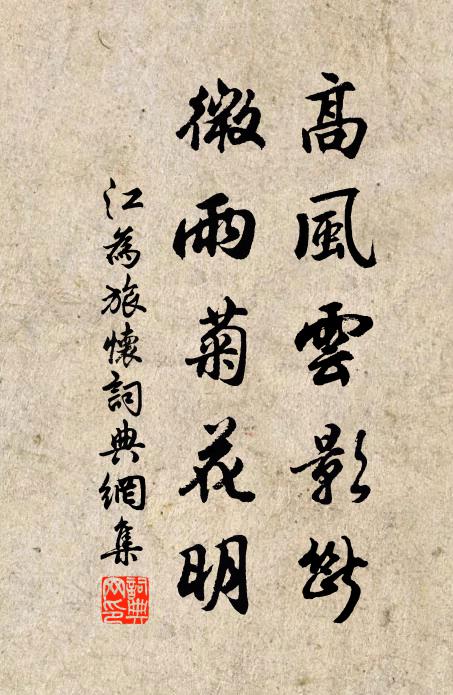 高風雲影斷
微雨菊花明
江為旅懷詞典網集
詞典網印